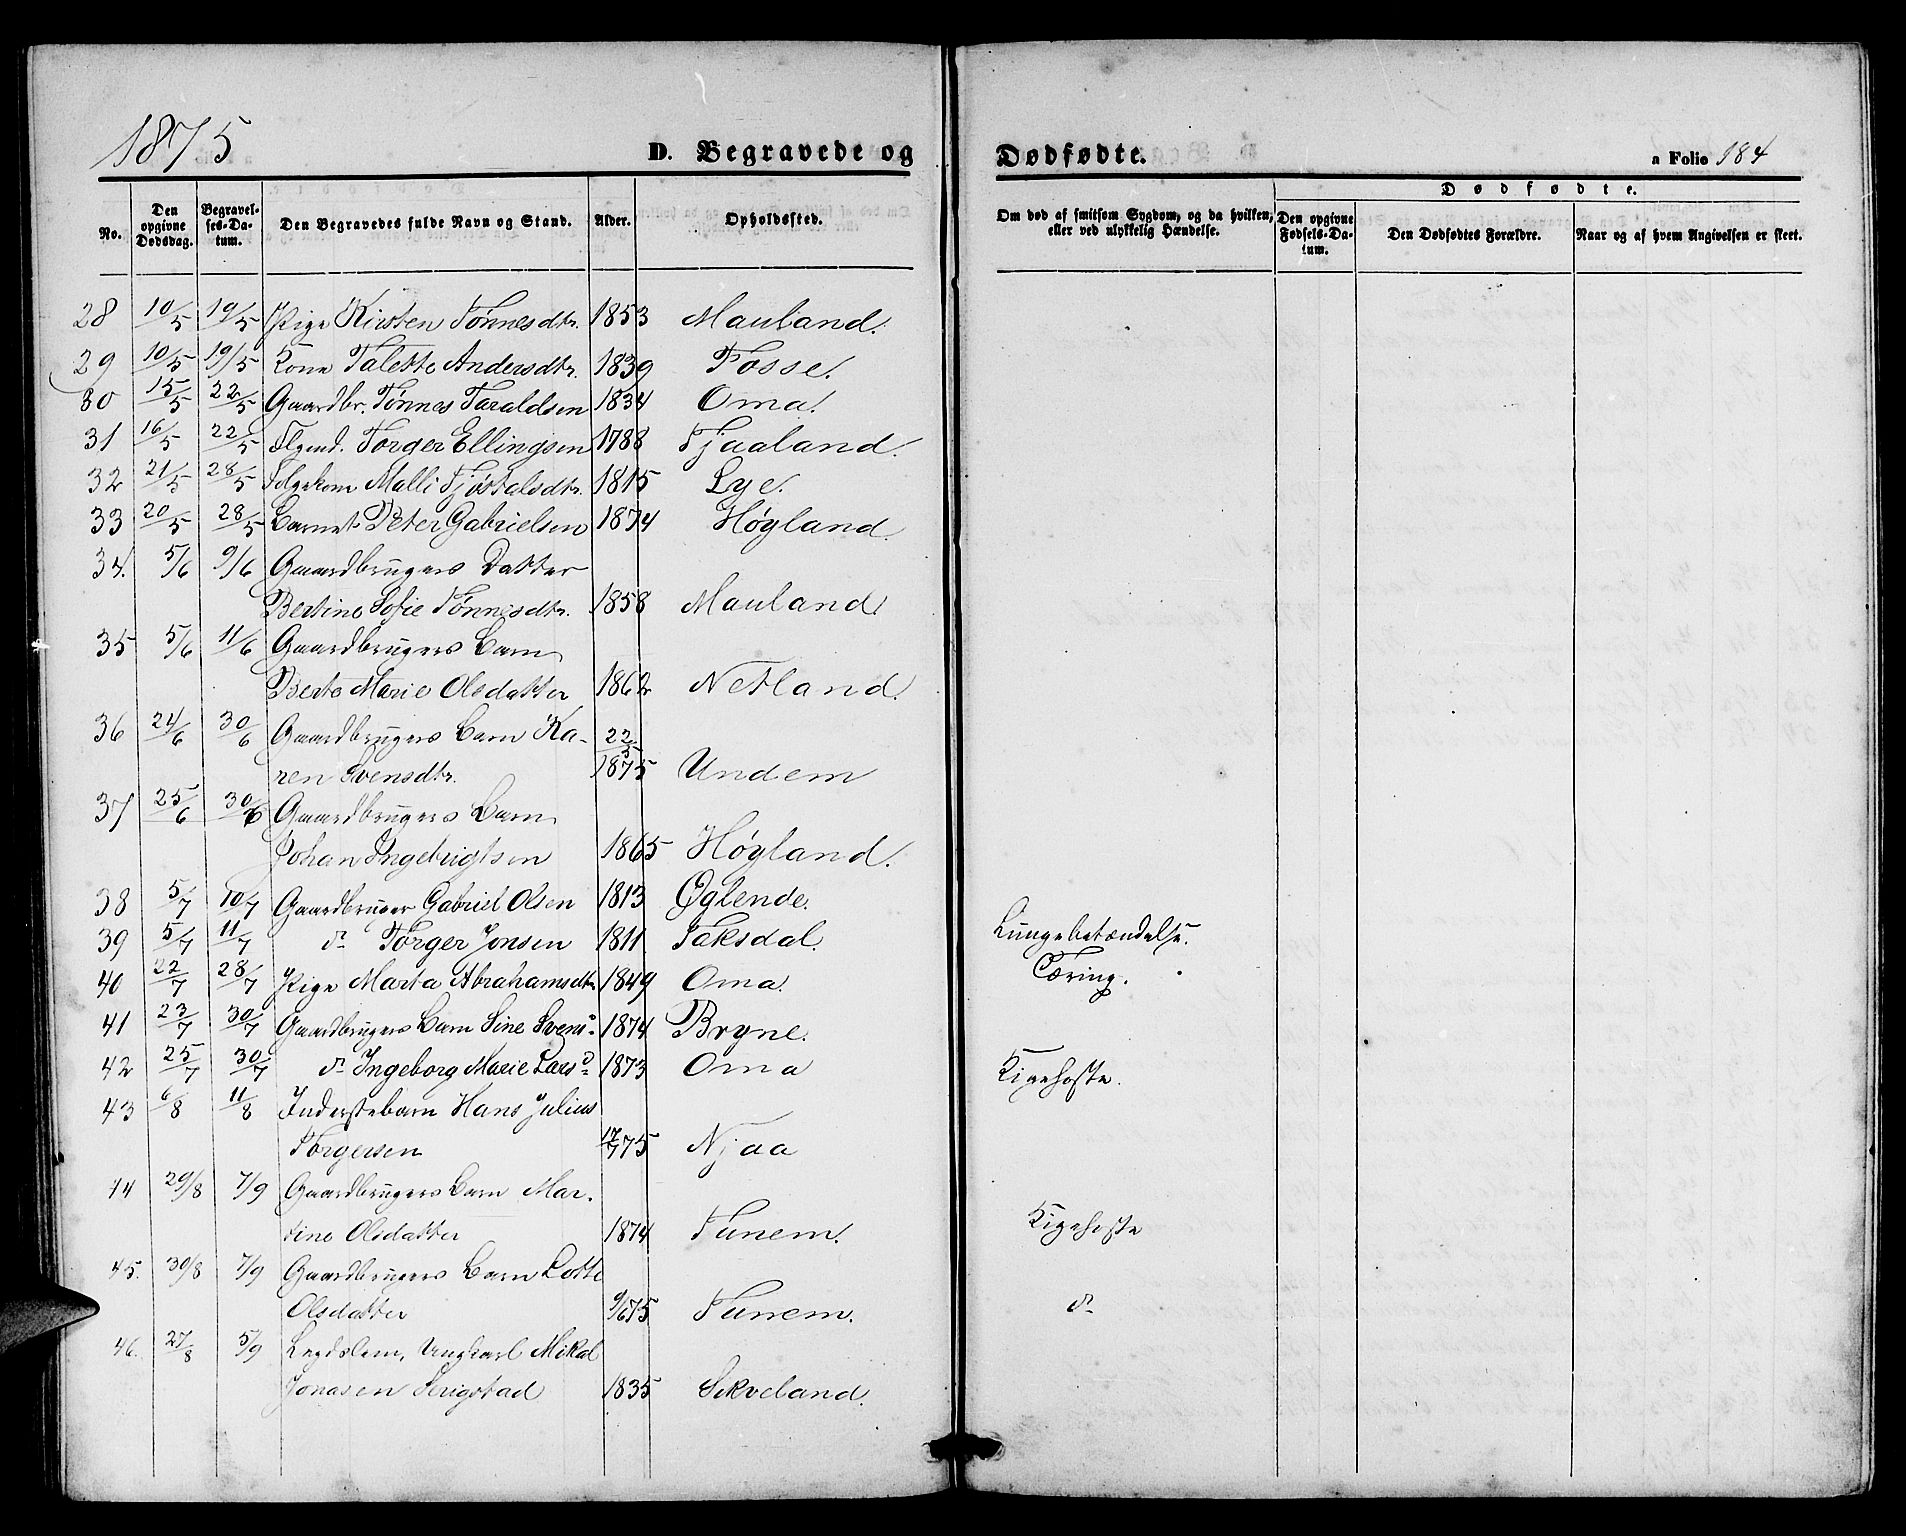 1875
D. Begravede og Dødfødte.
a Folio 184
No.
Den opgivne Dødsdag.
Begravelses-Datum.
Den Begravedes fulde Navn og Stand.
Alder.
Opholdssted.
Om død af smitsom Sygdom, og da hvilken, eller ved ulykkelig Hændelse.
Dødfødte.
Den opgivne Fødsels-Datum.
Den Dødfødtes Forældre.
Naar og af hvem Angivelsen er skeet.
28 10/5 19/5 Pige Kirsten Tønnesdtr. 1853 Mauland.
29 10/5 19/5 Kone Talette Andersdtr. 1839 Fosse.
30 15/5 22/5 Gaardbr. Tønnes Taraldsen 1834 Oma.
31 16/5 22/5 Torger Ellingsen 1788 Tjaaland.
32 21/5 28/5 Folgekone Malli 1815 Lye.
33 20/5 28/5 Barnet Peter Gabrielsen 1874 Høgland
34. 5/6 9/6 Gaardbrugers Datter
Bertine Sofie Tønnesdtr. 1858 Mauland
35 5/6 11/6 Gaardbrugers Barn
Berte Marie Olsdatter 1862 Netland.
36 24/6 30/6 Gaardbrugers Barn Ka-
ren Svensdtr. 22/5 1875 Undem
37 25/6 30/6 Gaardbrugers Barn
Johan Ingebrigtsen 1865 Høgland.
38 5/7 10/7 Gaardbruger Gabriel Olsen 1813 Øglende.
39 5/7 11/7 do Torger Jonsen 1811 Taksdal. Lungebetændelse.
40 22/7 28/7 Pige Marta Abrahamsdtr 1849 Oma. Tæring.
41 23/7 30/7 Gaardbrugers Barn Sine Svens 1874 Bryne.
42 25/7 30/7 do Ingeborg Marie Larsd 1873 Oma Kighoste.
43 6/8 11/8 Inderstebarn Hans Julius
Torgersen 17/7 75 Njaa
44 29/8 7/9 Gaardbrugers Barn Mar-
tine Olsdatter 1874 Tunem. Kighoste
45. 30/8 7/9 Gaardbrugers Barn Lotte
Olsdatter 9/6 75 Tunem. do
46. 27/8 5/9 Lægdslem, Ungkarl Mikal
Jonasen Serigstad 1835 Sikveland.